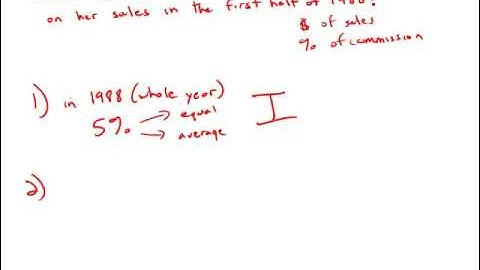 on her sales in the first half of 1988?
$ of sales
% of commission
1) in 1988 (whole year)
5% → equal
→ average
I
2)